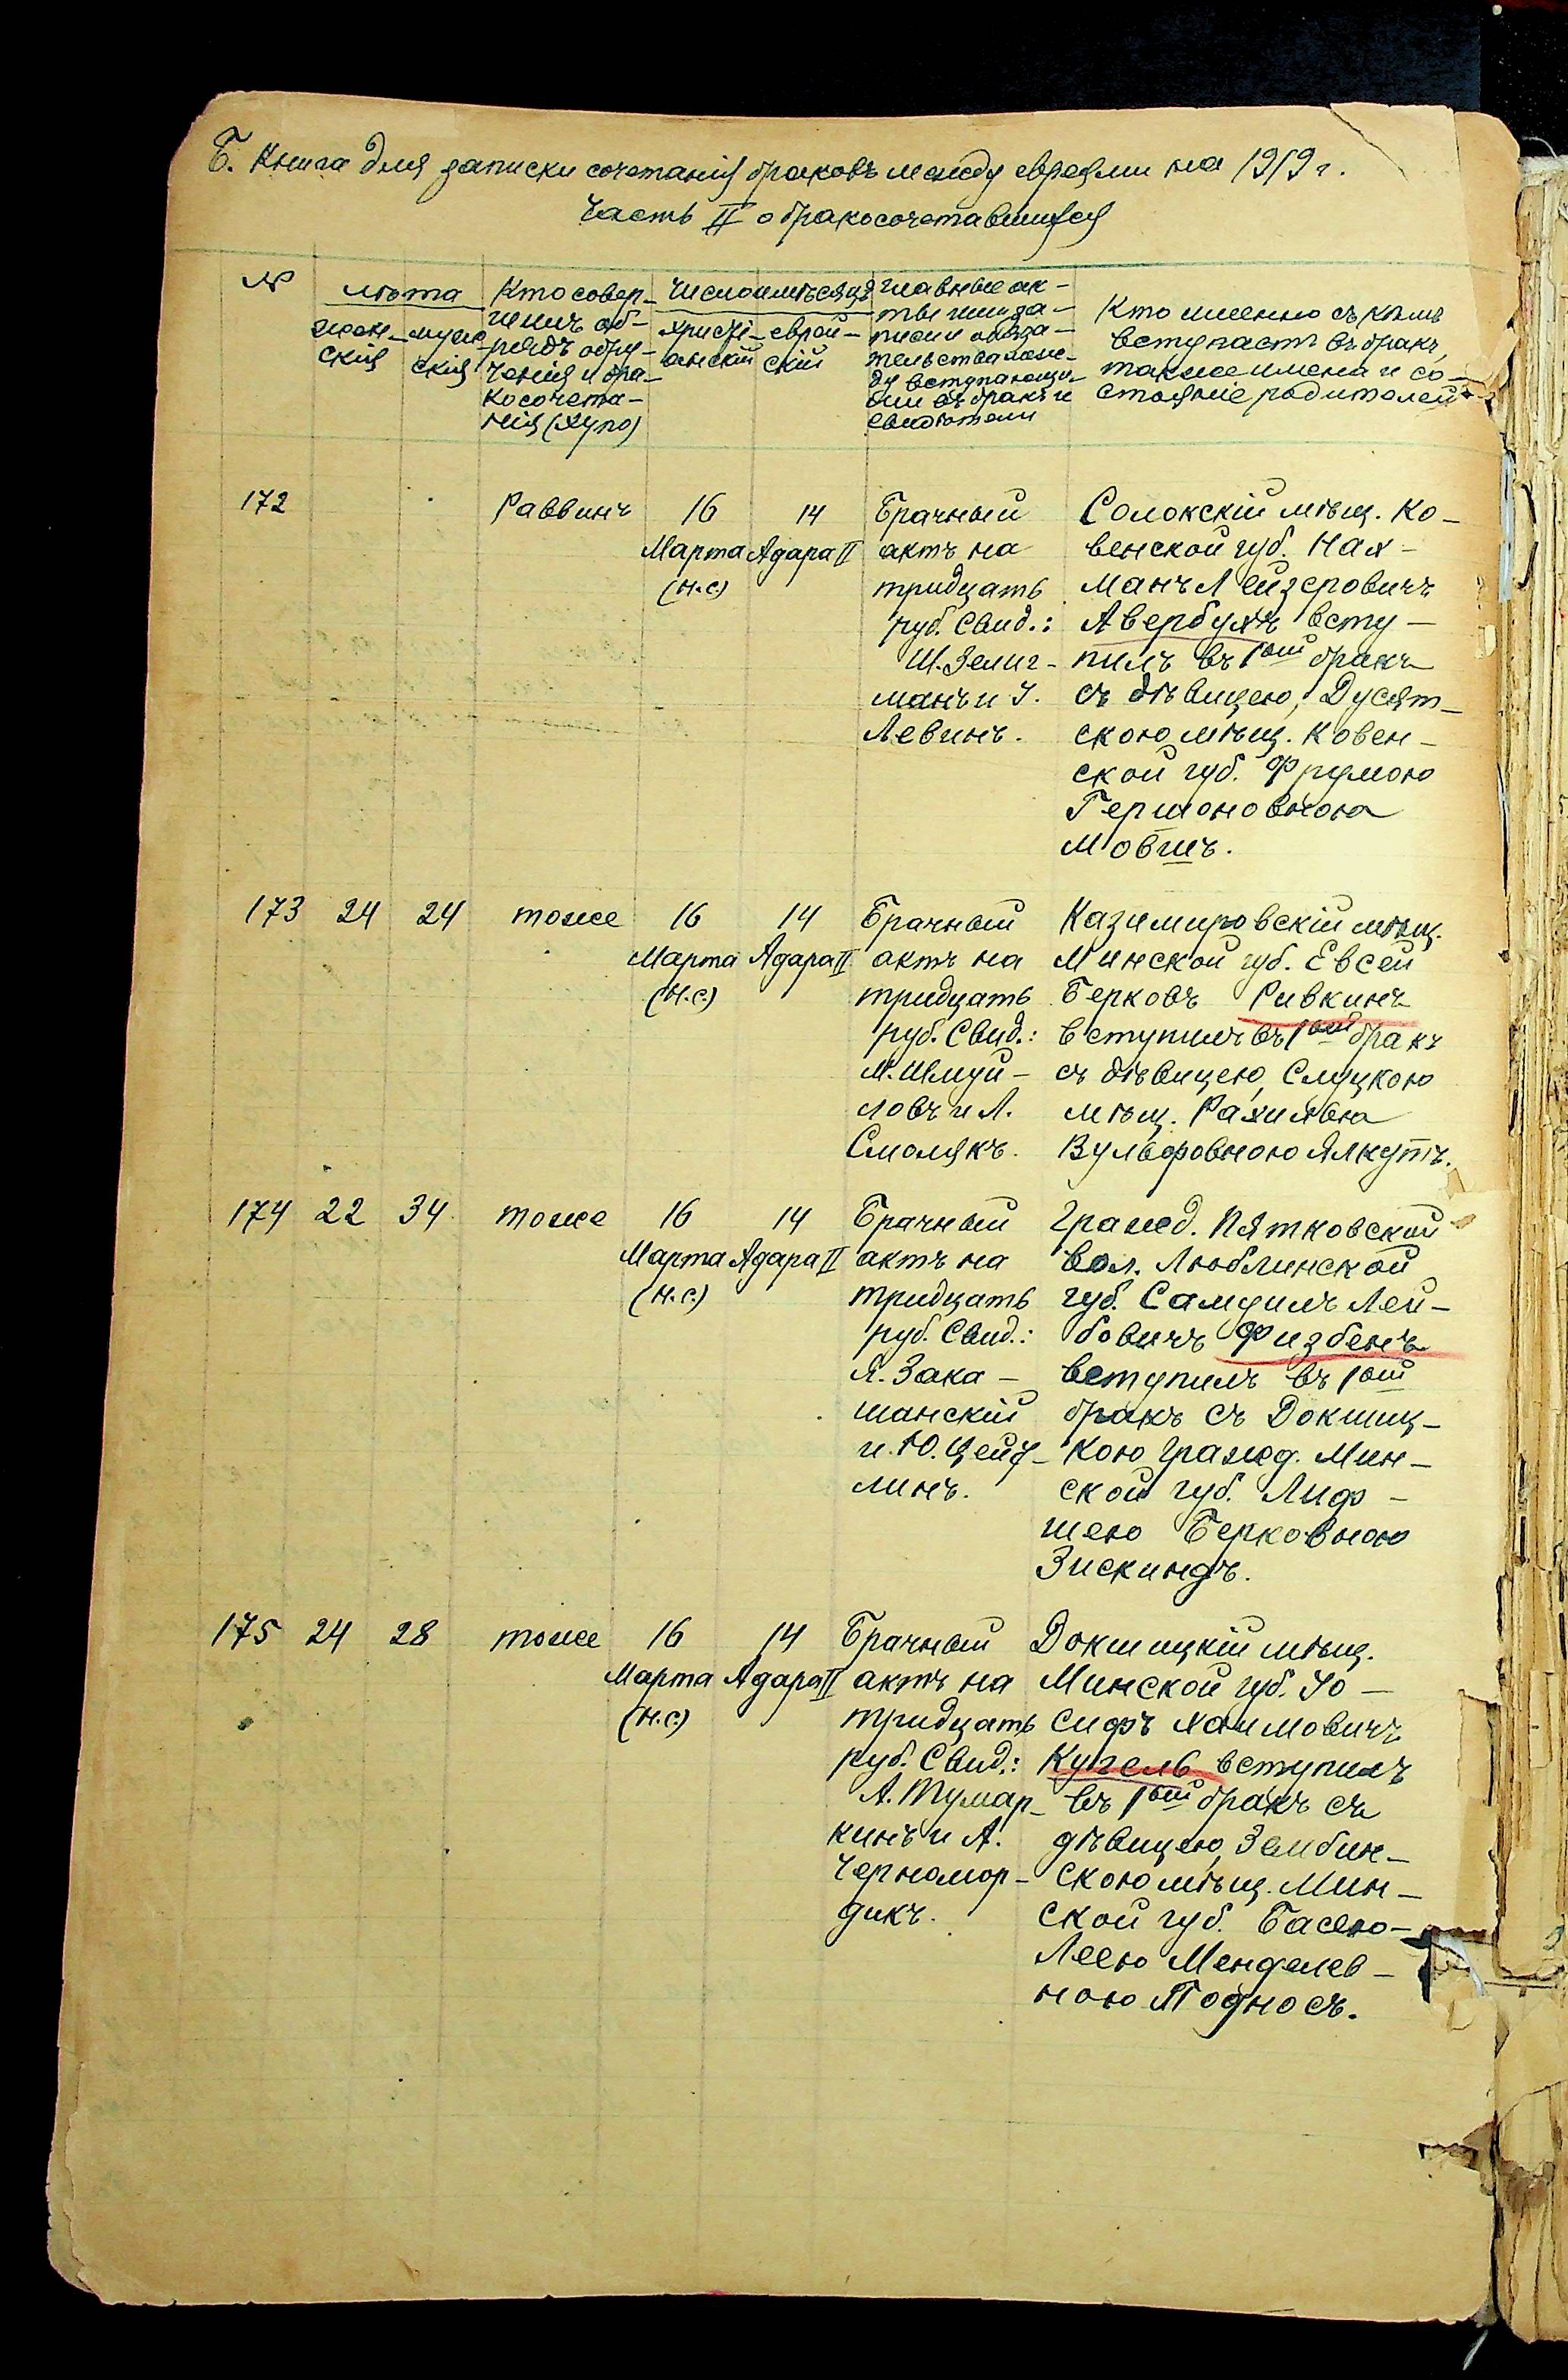 Б. Книга для записки сочетанія браковъ между евреями на 1919 г.
Часть II о бракосочетавшихся
№
лѣта
жен-
скія
муж-
скія
Кто совер-
шилъ об-
рядъ обру-
ченія и бра-
косочета-
нія (Хупо)
Число и мѣсяцъ
христі-
анскій
еврей-
скій
Главные ак-
ты или за-
писи и обяза-
тельства меж-
ду вступающи-
ми въ бракъ и
свидѣтели
Кто именно съ кѣмъ
вступаетъ въ бракъ,
также имена и со-
стояніе родителей
172
Раввинъ
16
Марта
(н.с.)
14
Адара II
Брачный
актъ на
тридцать
руб. Свид.:
Ш. Зелиг-
манъ и І.
Левинъ.
Солокскій мѣщ. Ко-
венской губ. Нах-
манъ Лейзеровичъ
Авербухъ всту-
пилъ въ 1ый бракъ
съ дѣвицею, Дусят-
скою мѣщ. Ковен-
ской губ. Фрумою
Гершоновною
Мовшъ.
173 24 24 тоже
16
Марта
(н.с.)
14
Адара II
Брачный
актъ на
тридцать
руб. Свид.:
М. Шмуй-
ловъ и Л.
Смолякъ.
Казимировскій мѣщ.
Минской губ. Евсей
Берковъ Ривкинъ
вступилъ въ 1ый бракъ
съ дѣвицею, Слуцкою
мѣщ. Рахилью
Вульфовною Ялкутъ.
174 22 34 тоже
16
Марта
(н.с.)
14
Адара II
Брачный
актъ на
тридцать
руб. Свид.:
Я. Зака-
шанскій
и Ю. Цейт-
линъ.
Гражд. Пятковской
вол. Люблинской
губ. Самуилъ Лей-
бовичъ Физбенъ
вступилъ въ 1ый
бракъ съ Докшиц-
кою гражд. Мин-
ской губ. Лиф-
шею Берковною
Зискиндъ.
175 24 28 тоже
16
Марта
(н.с.)
14
Адара II
Брачный
актъ на
тридцать
руб. Свид.:
А. Тумар-
кинъ и А.
Черномор-
дикъ.
Докшицкій мѣщ.
Минской губ. Іо-
сифъ Хаимовичъ
Кугель вступилъ
въ 1ый бракъ съ
дѣвицею, Зембин-
скою мѣщ. Мин-
ской губ. Басею-
Леею Менделев-
ною Подносъ.